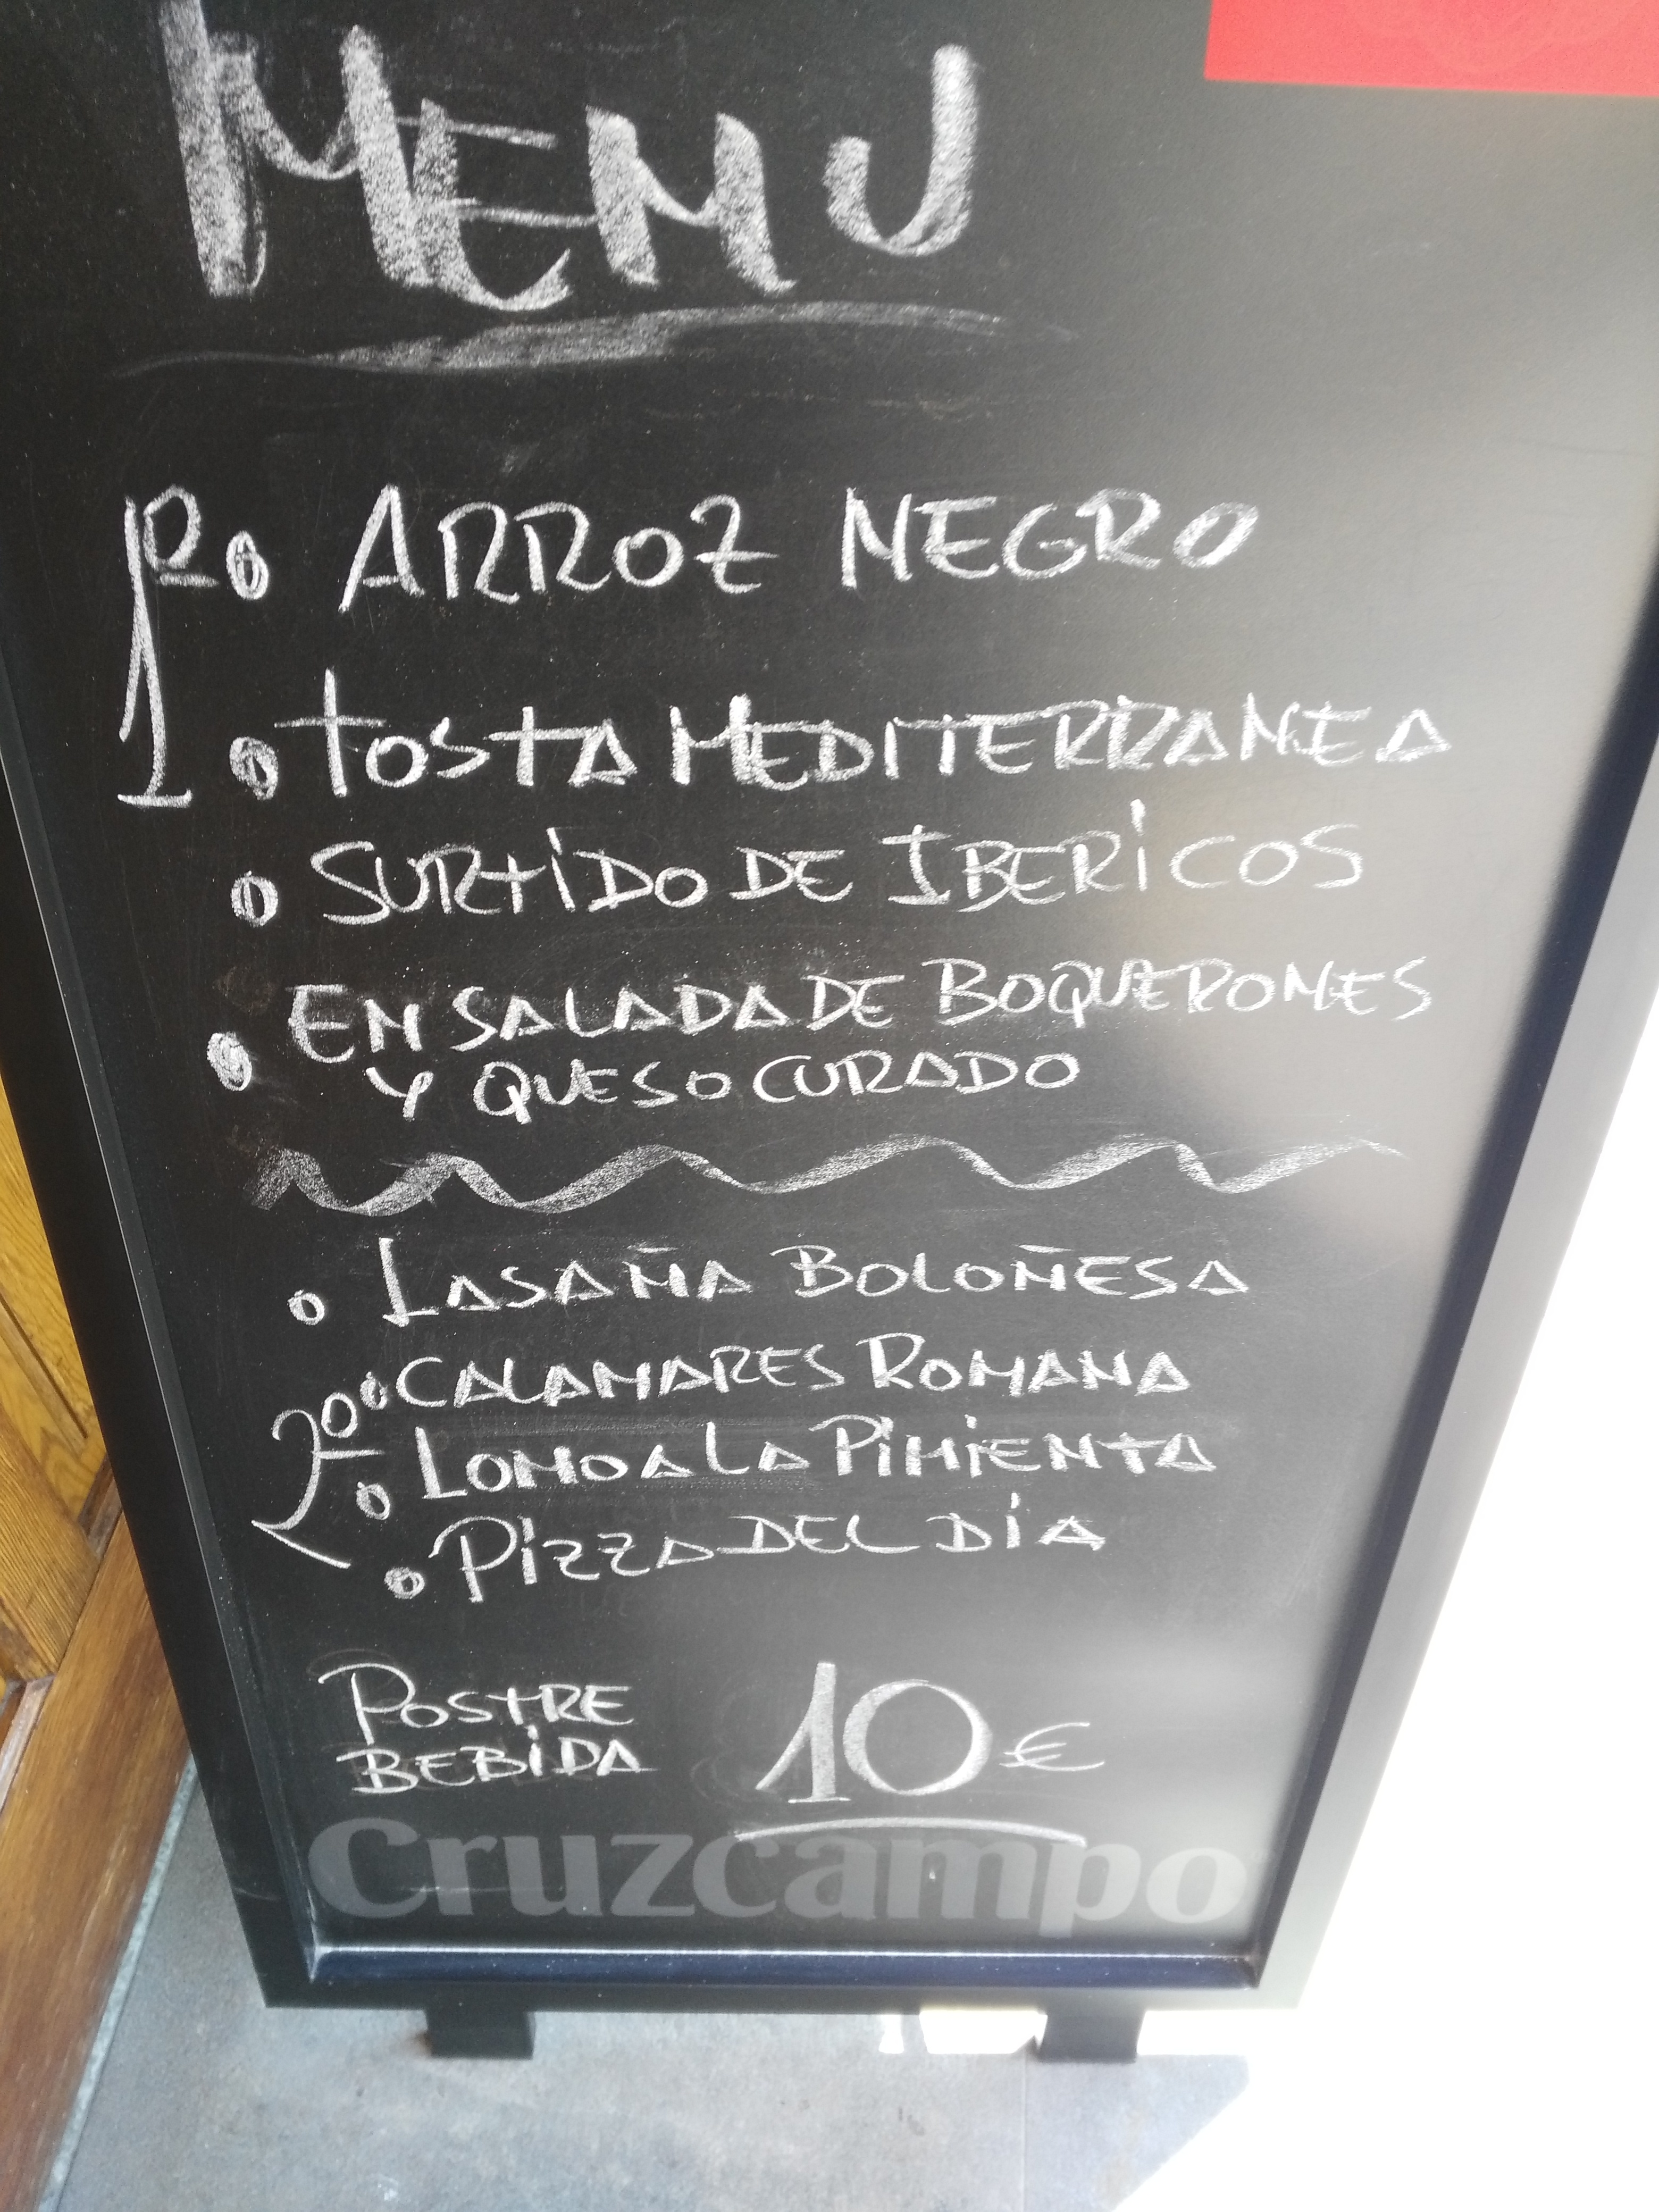 MENU
1º • ARROZ NEGRO
• TOSTA MEDITERRANEA
• SURTIDO DE IBERICOS
• ENSALADA DE BOQUERONES
Y QUESO CURADO
• LASAÑA BOLOÑESA
2º • CALAMARES ROMANA
• LOMO A LA PIMIENTA
• PIZZA DEL DIA
POSTRE
BEBIDA
10€
Cruzcampo